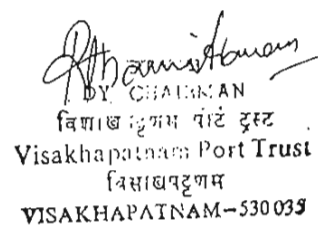 DY. CHAIRMAN
विशाखपट्टणम पोर्ट ट्रस्ट
Visakhapatnam Port Trust
विसाखपट्टणम
VISAKHAPATNAM-530035